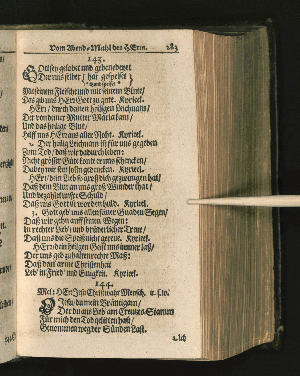 Vom Abend-Mahl des HErrn. 283
143.
GOtt sey gelobet und gebenedeyet
Der uns selber / hat gespeiset
Mit seinem Fleische und mit seinem Blute /
Das gib uns HErr Gott zu gute. Kyrieel.
HErr / durch deinen heiligen Leichnam /
Der von deiner Mutter Maria kam /
Und das heilige Blut /
Hilff uns HErr aus aller Noht. Kyrieel.
2. Der heilig Leichnam ist für uns gegeben
Zum Tod / daß wir dadurch leben:
Nicht grösser Güte konte er uns schencken /
Dabey wir sein solln gedencken. Kyrieel.
HErr / dein Lieb so groß dich gezwungen hat /
Daß dein Blut an uns groß Wunder that /
Und bezahlt unser Schuld /
Daß uns Gott ist worden huld. Kyrieel.
3. Gott geb uns allen seiner Gnaden Segen /
Daß wir gehn auff seinen Wegen:
In rechter Lieb und brüderlicher Treue /
Daß uns die Speiß nicht gereue. Kyrieel.
HErr / dein heilgen Geist uns immer laß /
Der uns geb zu halten rechte Maß:
Daß dein arme Christenheit
Leb in Fried und Einigkeit. Kyrieel.
144.
Mel: HErr JEsu Christ wahr Mensch. u. s. w.
O JEsu du mein Bräutigam /
Der du aus Lieb am Creutzes-Stamm
Für mich den Tod gelitten hast /
Genommen weg der Sünden Last.
2. Ich